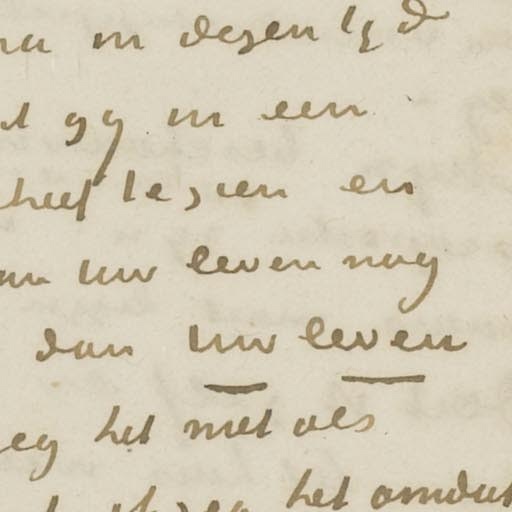 na in dezen tyd
t gy in een
heef te zien en
an uw leven nog
dan uw leven
eg het niet als
het omdat